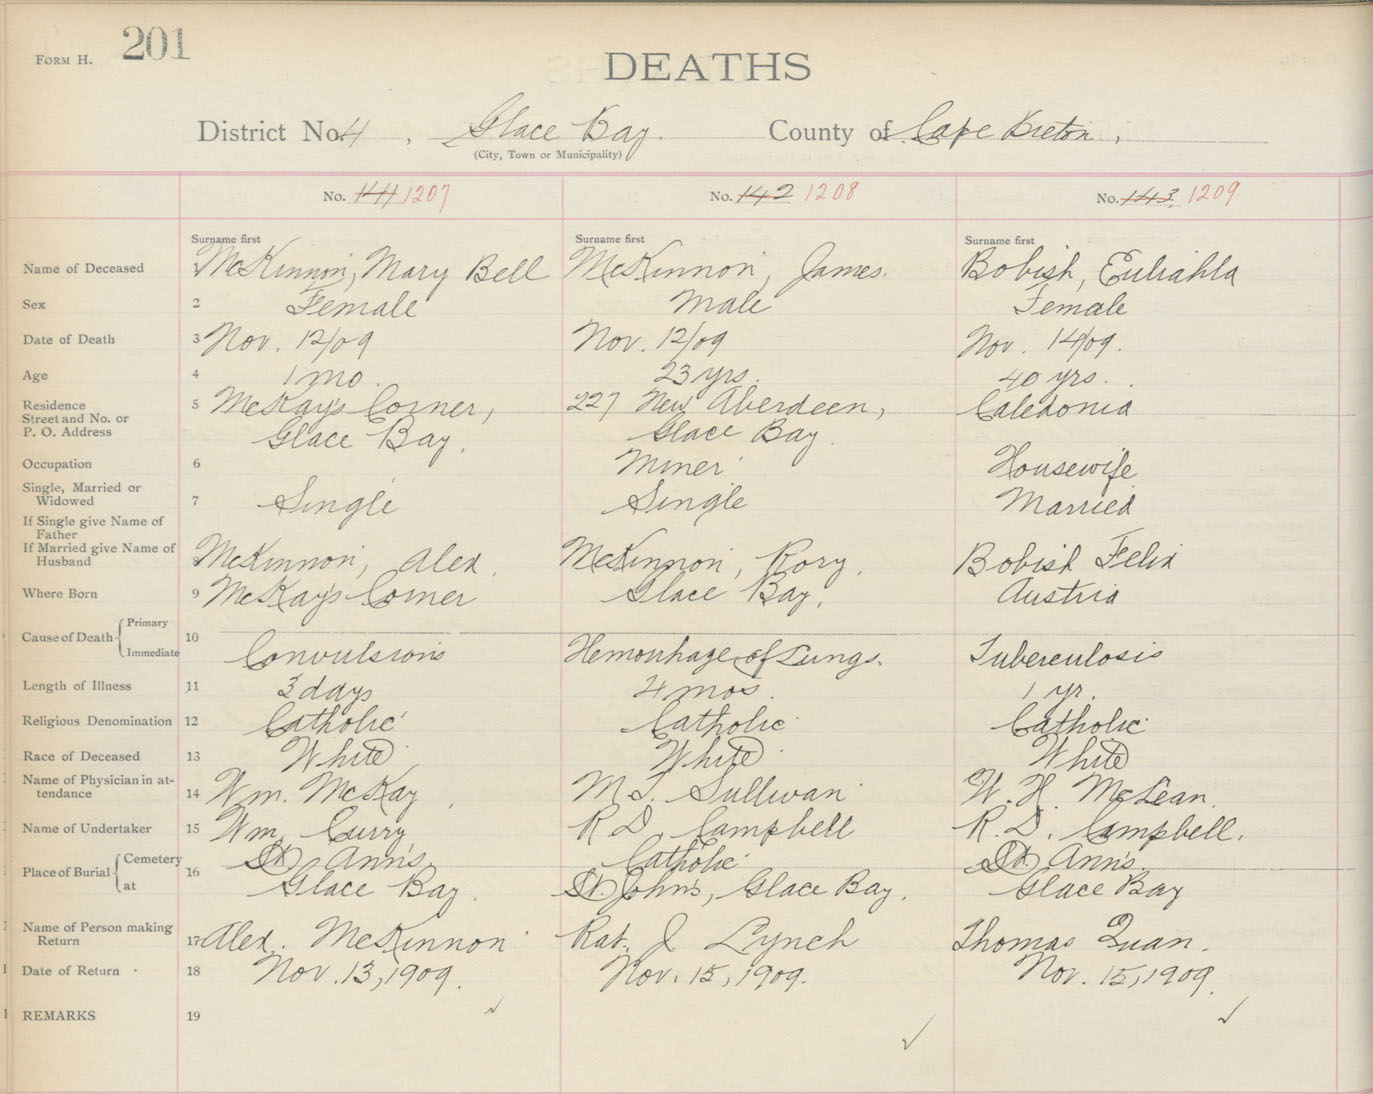 FORM H. 201
DEATHS
District No. 4, Glace Bay. County of Cape Breton,
(City, Town or Municipality)
No. 141 1207 No. 142 1208 No. 143 1209
Surname first Surname first Surname first
Name of Deceased 1 McKinnon, Mary Bell McKinnon, James. Bobish, Euliahla
Sex 2 Female Male Female
Date of Death 3 Nov. 12/09 Nov. 12/09 Nov. 14/09.
Age 4 1 mo. 23 yrs. 40 yrs.
Residence 5 McKay's Corner, 227 New Aberdeen, Caledonia
Street and No. or
P. O. Address Glace Bay. Glace Bay.
Occupation 6 Miner Housewife
Single, Married or
Widowed 7 Single Single Married
If Single give Name of
Father
If Married give Name of
Husband 8 McKinnon, Alex. McKinnon, Rory. Bobish Felix
Where Born 9 McKay's Corner Glace Bay. Austria
Cause of Death Primary
Immediate 10 Convulsions Hemorrhage of Lungs. Tuberculosis
Length of Illness 11 3 days 4 mos. 1 yr.
Religious Denomination 12 Catholic Catholic Catholic
Race of Deceased 13 White White White
Name of Physician in at-
tendance 14 Wm. McKay, M. T. Sullivan W. H. McLean.
Name of Undertaker 15 Wm. Curry R D. Campbell R. D. Campbell.
Place of Burial Cemetery 16 St. Ann's. Catholic St. Ann's.
at Glace Bay. St Johns, Glace Bay. Glace Bay
Name of Person making
Return 17 Alex. McKinnon Rat. J Lynch Thomas Quan.
Date of Return 18 Nov. 13, 1909. Nov. 15, 1909. Nov. 15, 1909.
REMARKS 19